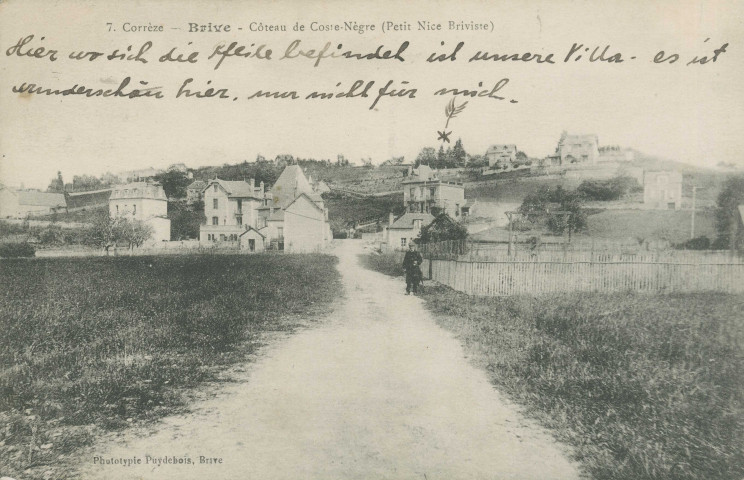 7. Corrèze — Brive - Côteau de Coste-Nègre (Petit Nice Briviste)
Hier wo sich die Pfeile befindet ist unsere Villa - es ist
wunderschön hier, nur nicht für mich.
Phototypie Puydebois, Brive